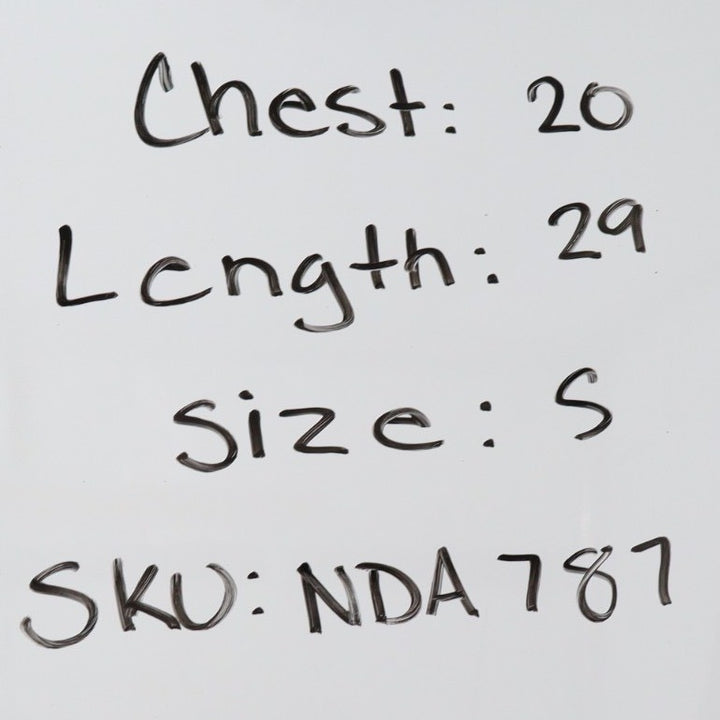 Chest: 20
Length: 29
Size: S
SKU: NDA 787